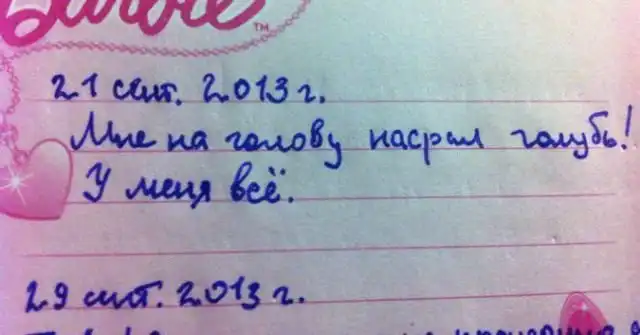 Barbie™
21 сент. 2013 г.
Мне на голову насрал голубь!
У меня всё.
29 сент. 2013 г.